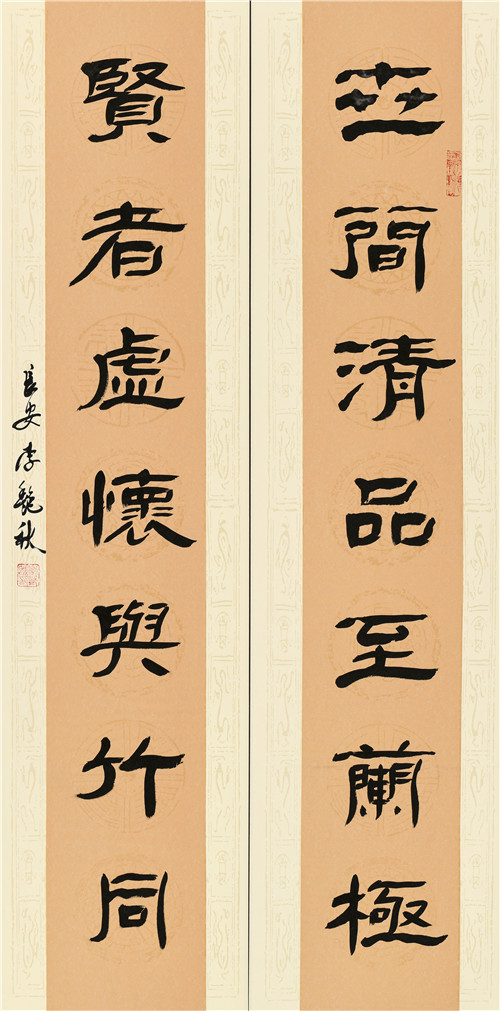 世簡清品至蘭極
賢者虛懷與竹同
長安李艷秋